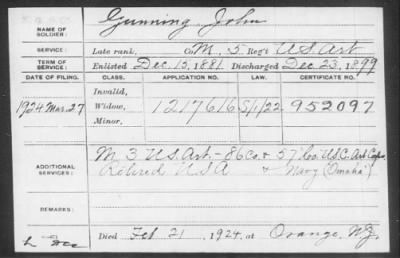 NAME OF SOLDIER: Gunning John
SERVICE: Late rank, Co. M, 5 Reg't U.S. Art.
TERM OF SERVICE: Enlisted Dec. 15, 1881 Discharged Dec. 23, 1899
DATE OF FILING. CLASS. APPLICATION NO. LAW. CERTIFICATE NO.
Invalid,
1924 Mar. 27 Widow, 1217616 5/1/22 952097
Minor,
ADDITIONAL SERVICES: M 3 U.S. Art. - 86 Co. & 57 Co. U.S.C. Art Corps
Retired USA & Navy (Omaha)
REMARKS:
Died Feb 21, 1924, at Orange, NJ.